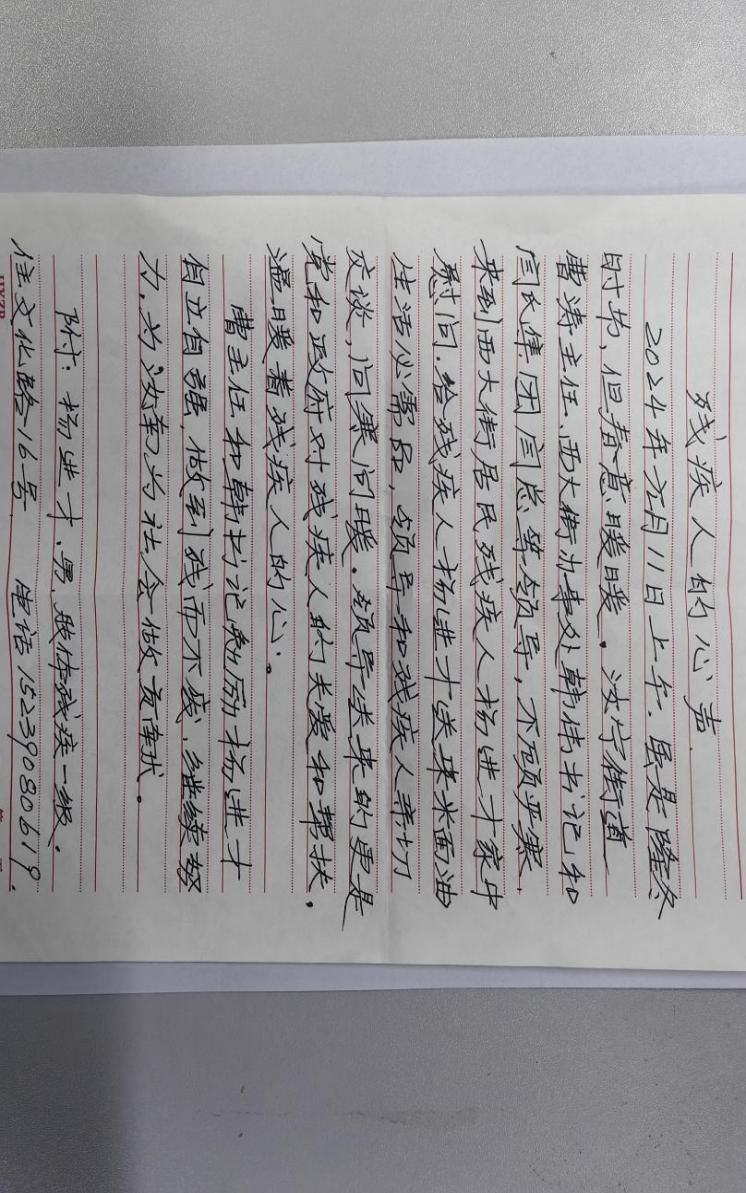 残疾人的心声
2024年元月11日上午.虽是隆冬
时节,但春意暖暖。汝宁街道
曹涛主任、西大街办事处韩伟书记和
闫氏集团闫总等领导,不顾严寒.
来到西大街居民残疾人杨进才家中
慰问.给残疾人杨进才送来米面油
生活必需品,领导和残疾人亲切
交谈,问寒问暖。领导送来的更是
党和政府对残疾人的关爱和帮扶.
温暖着残疾人的心.
曹主任和韩书记勉励杨进才
自立自强,做到残而不废,继续努
力.为汝南为社会做贡献.
附:杨进才.男.肢体残疾一级.
住文化路16号. 电话15239080619.